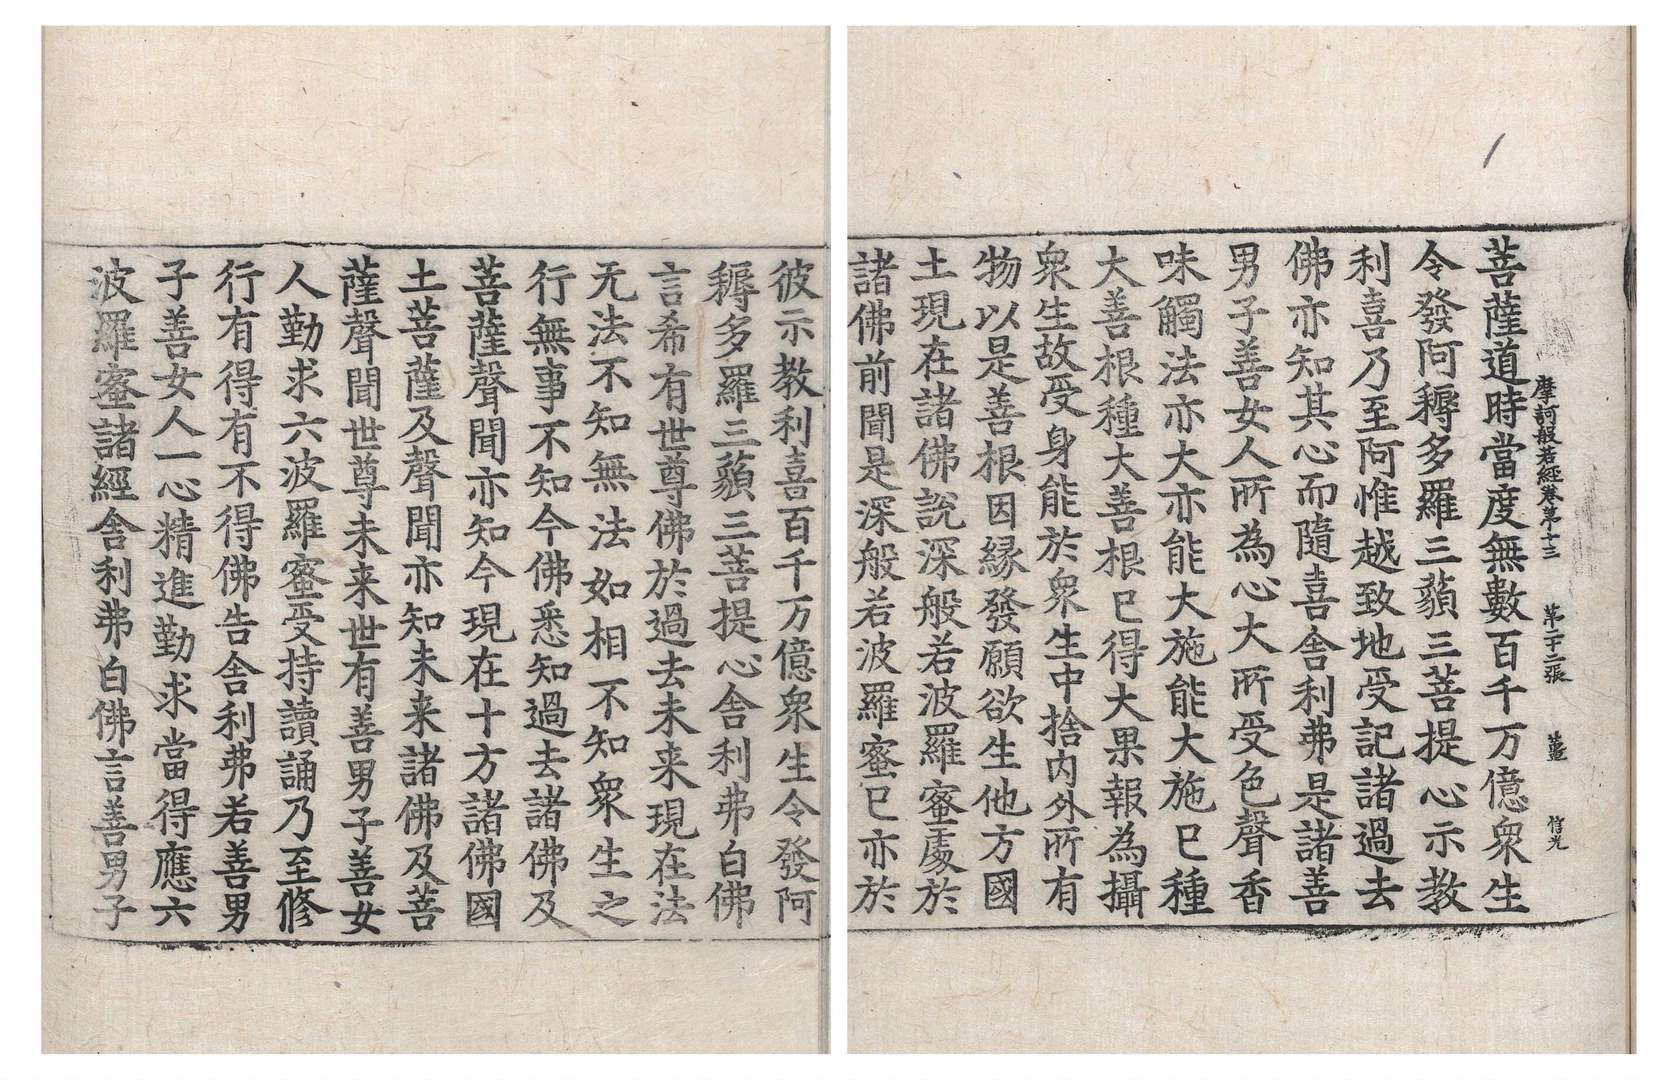 摩訶般若經卷第十三　第二十二張　薑　信光
菩薩道時當度無數百千万億衆生
令發阿耨多羅三藐三菩提心示教
利喜乃至阿惟越致地受記諸過去
佛亦知其心而隨喜舍利弗是諸善
男子善女人所為心大所受色聲香
味觸法亦大亦能大施能大施已種
大善根種大善根已得大果報為攝
衆生故受身能於衆生中捨内外所有
物以是善根因緣發願欲生他方國
土現在諸佛說深般若波羅蜜處於
諸佛前聞是深般若波羅蜜已亦於
彼示教利喜百千万億衆生令發阿
耨多羅三藐三菩提心舍利弗白佛
言希有世尊佛於過去未来現在法
无法不知無法如相不知衆生之
行無事不知今佛悉知過去諸佛及
菩薩聲聞亦知今現在十方諸佛國
土菩薩及聲聞亦知未来諸佛及菩
薩聲聞世尊未来世有善男子善女
人勤求六波羅蜜受持讀誦乃至脩
行有得有不得佛告舍利弗若善男
子善女人一心精進勤求當得應六
波羅蜜諸經舍利弗白佛言善男子